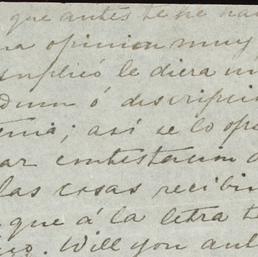 que antes te ne ha
na opinion muy
suplicó le diera un
ó discripcio
tenia; así se lo ofre
ar contestacion a
las cosas recibi
que á la letra t
Will you aut